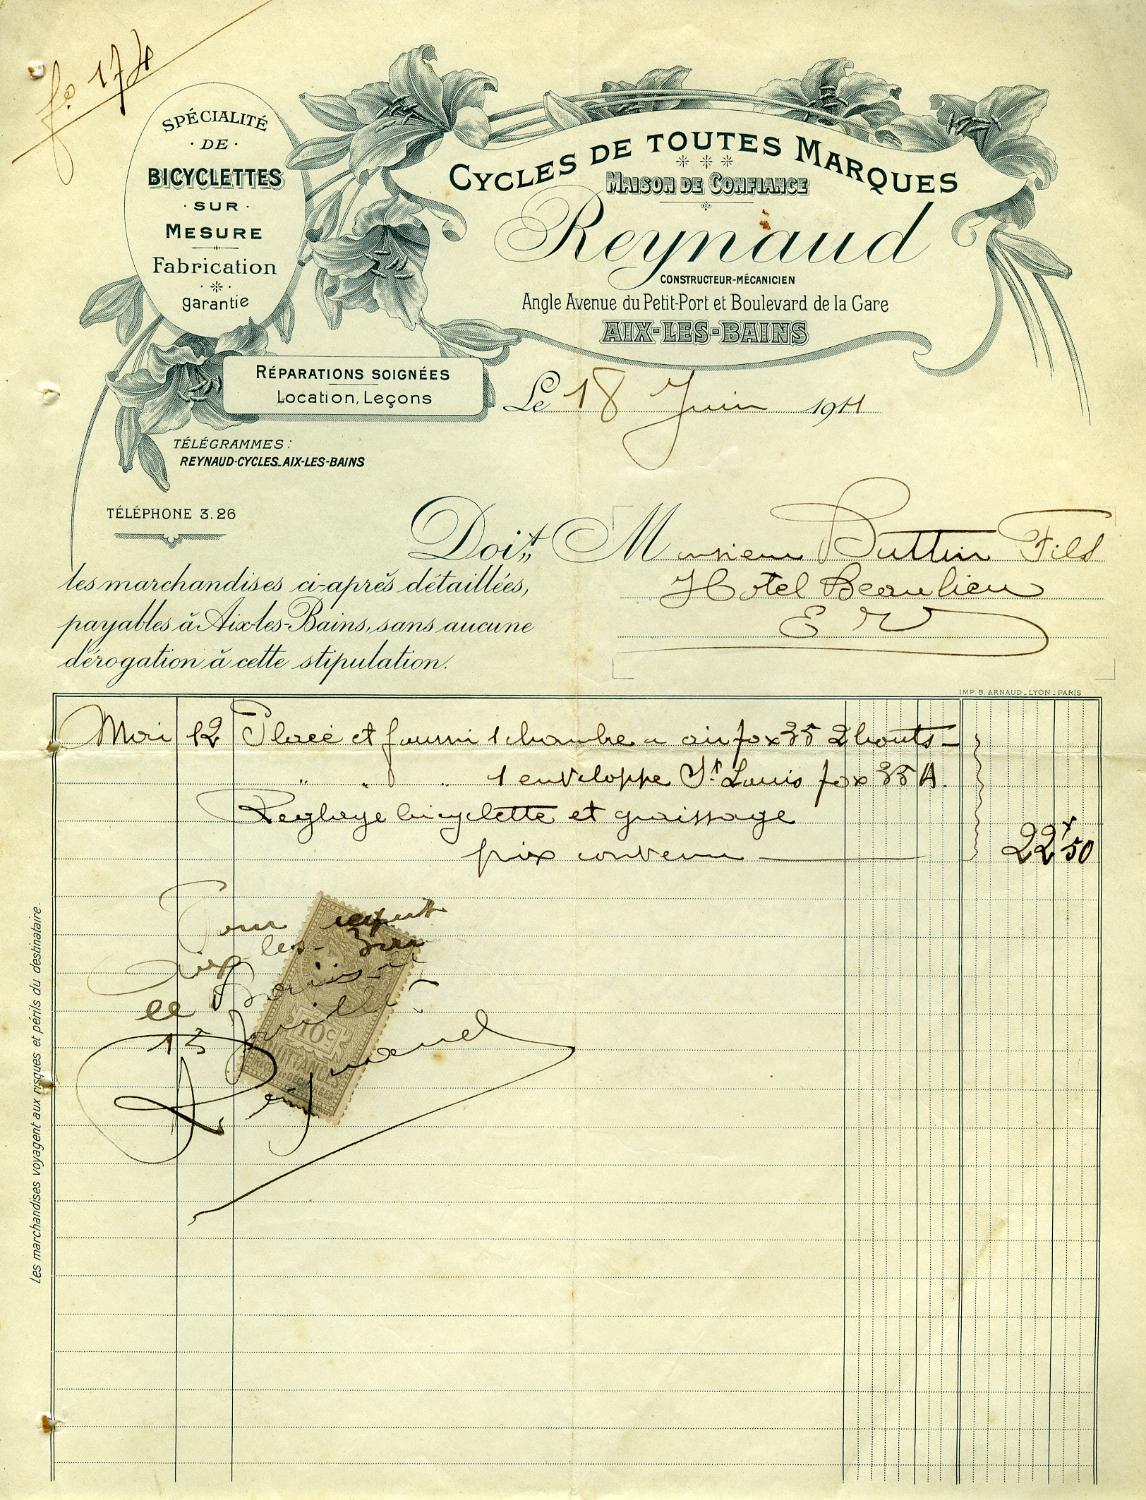 fo 174
SPÉCIALITÉ
· DE ·
BICYCLETTES
· SUR ·
MESURE
Fabrication
garantie
CYCLES DE TOUTES MARQUES
MAISON DE CONFIANCE
Reynaud
CONSTRUCTEUR-MÉCANICIEN
Angle Avenue du Petit-Port et Boulevard de la Gare
AIX-LES-BAINS
RÉPARATIONS SOIGNÉES
Location, Leçons
Le 18 Juin 1911
TÉLÉGRAMMES:
REYNAUD-CYCLES_AIX-LES-BAINS
TÉLÉPHONE 3.26
Doit Monsieur Buttin Fils
Hotel Beaulieu
E V
les marchandises ci-après détaillées,
payables à Aix-les-Bains, sans aucune
dérogation à cette stipulation.
IMP. B. ARNAUD_LYON_PARIS
Mai 12 Placé et fourni 1 chambre a air 2 bouts
" 1 enveloppe St Louis A.
Reglage bicyclette et graissage
prix convenu 22f50
Pour acquit
Aix les Bains
le 15 Juillet
Reynaud
10c
QUITTANCES
Les marchandises voyagent aux risques et périls du destinataire.